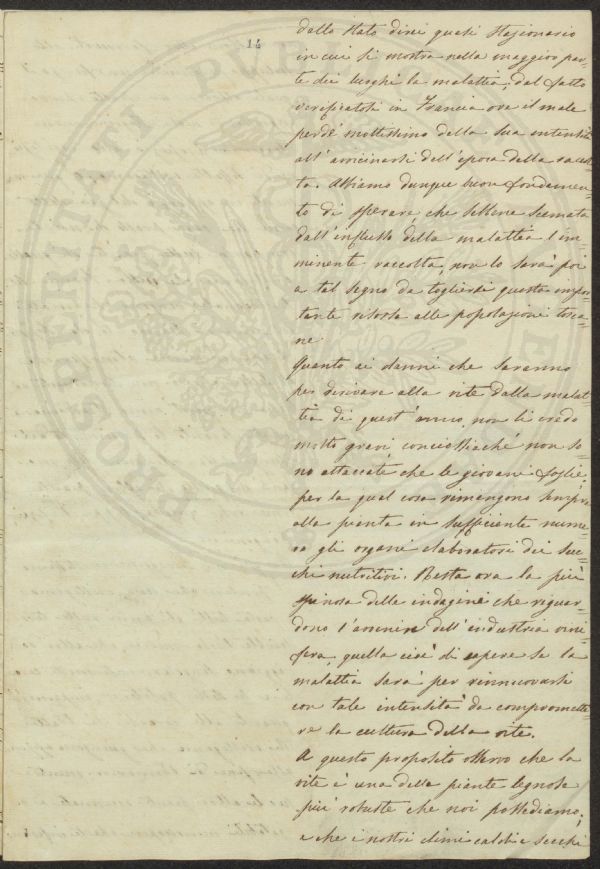 14
dallo stato direi quasi stazionario
in cui si mostra nella maggior par=
te dei luoghi la malattia, dal fatto
verificatosi in Francia ove il male
perdé moltissimo della sua intensità
all'avvicinarsi dell'epoca della raccol=
ta. Abbiamo dunque buon fondamen=
to di sperare che sebbene scemata
dall'influsso della malattia l'im=
minente raccolta, non lo sarà poi
a tal segno da togliersi questa impor=
tante risorsa alle popolazioni tosca=
ne.
Quanto ai danni che saranno
per derivare alla vite dalla malat=
tia di quest'anno, non li credo
molto gravi conciossiaché non so=
no attaccate che le giovani foglie,
per la qual cosa rimangono sempre
alla pianta in sufficiente nume=
ro gli organi elaboratori dei suc=
chi nutritivi. Resta ora la più
spinosa delle indagini che riguar=
dono l'avvenire dell'industria vini=
fera, quella cioè di sapere se la
malattia sarà per rinnuovarsi
con tale intensità da compromette=
re la cultura della vite.
A questo proposito osservo che la
vite è una delle piante legnose
più robuste che noi possediamo;
e che i nostri climi caldi e secchi
PROSPERITATI PVBLICAE